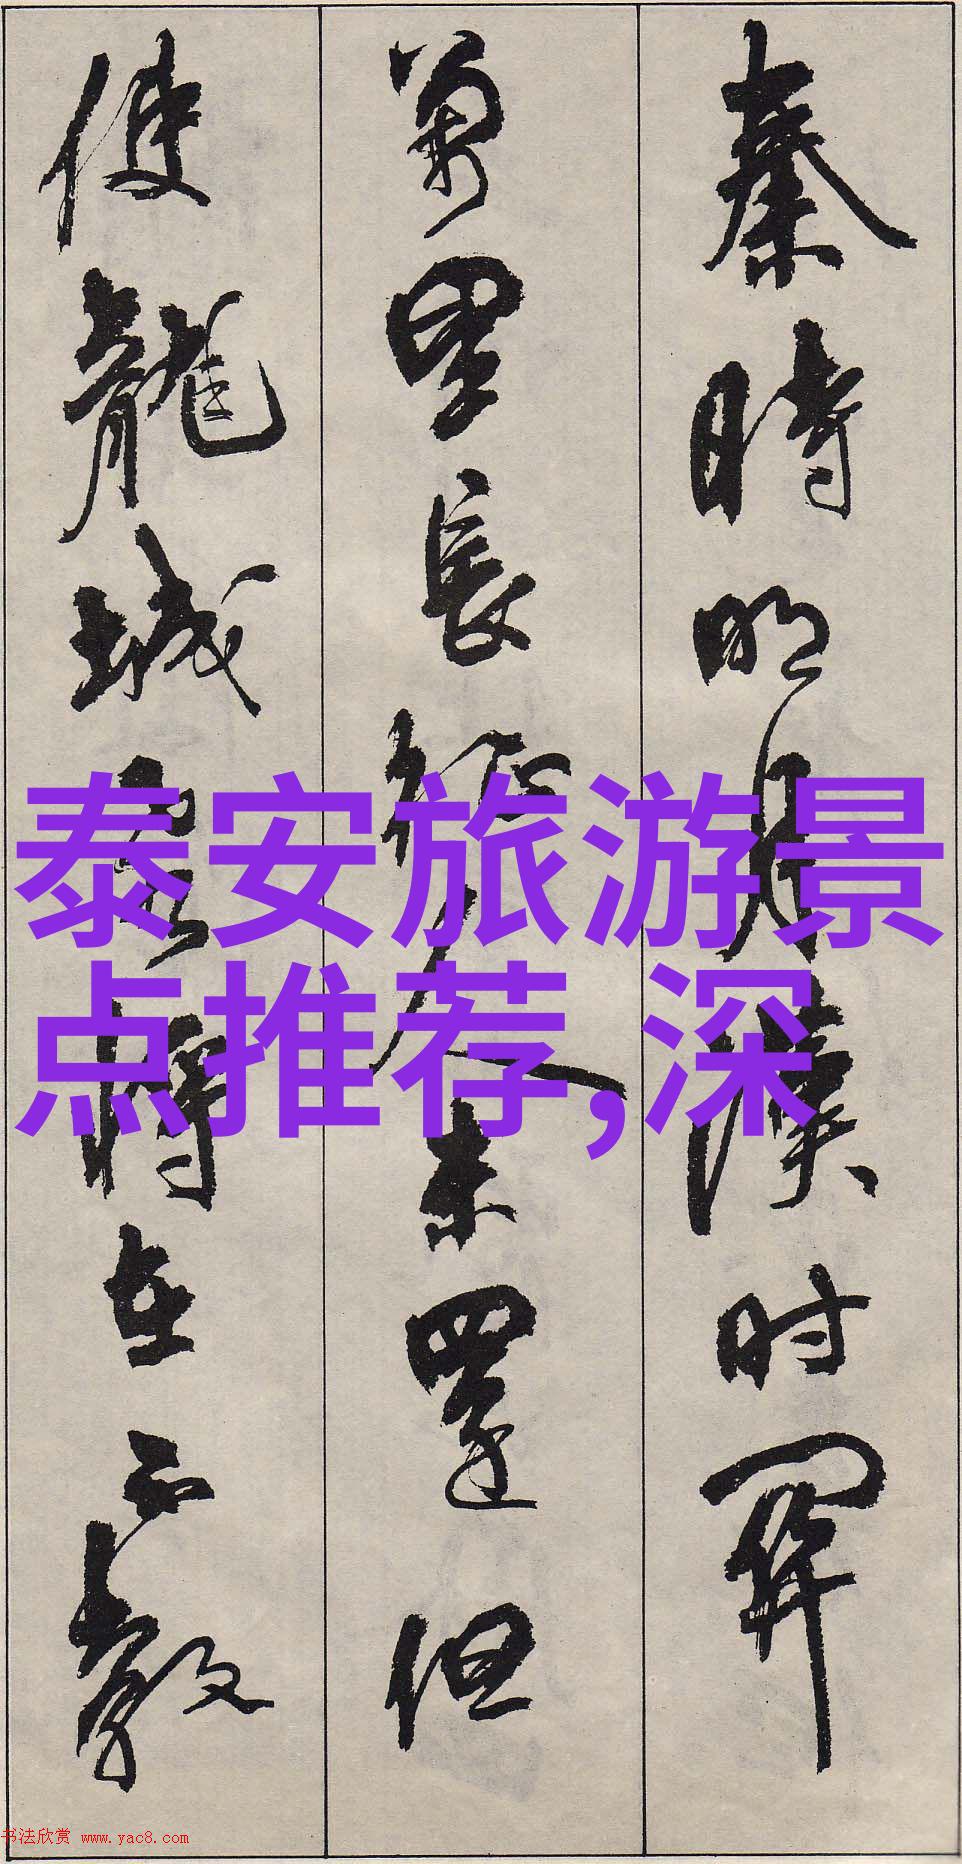 秦時明月漢时関
萬里長征人未還但
使龍城飛将在不教
泰安旅游景
点推荐,深
书法欣赏 www.yac8.com